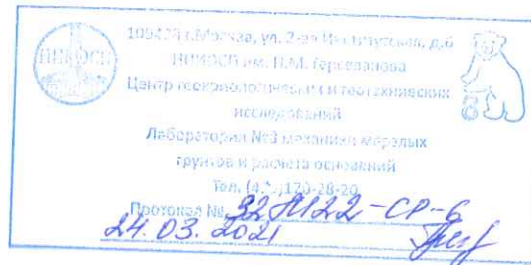 109428 г.Москва, ул. 2-ая Институтская, д.6
НИИОСП им. Н.М. Герсеванова
Центр геокриологических и геотехнических
исследований
Лаборатория №3 механики мерзлых
грунтов и расчета оснований
Тел. 170-28-20
Протокол №
24.03.2021
НИИОСП